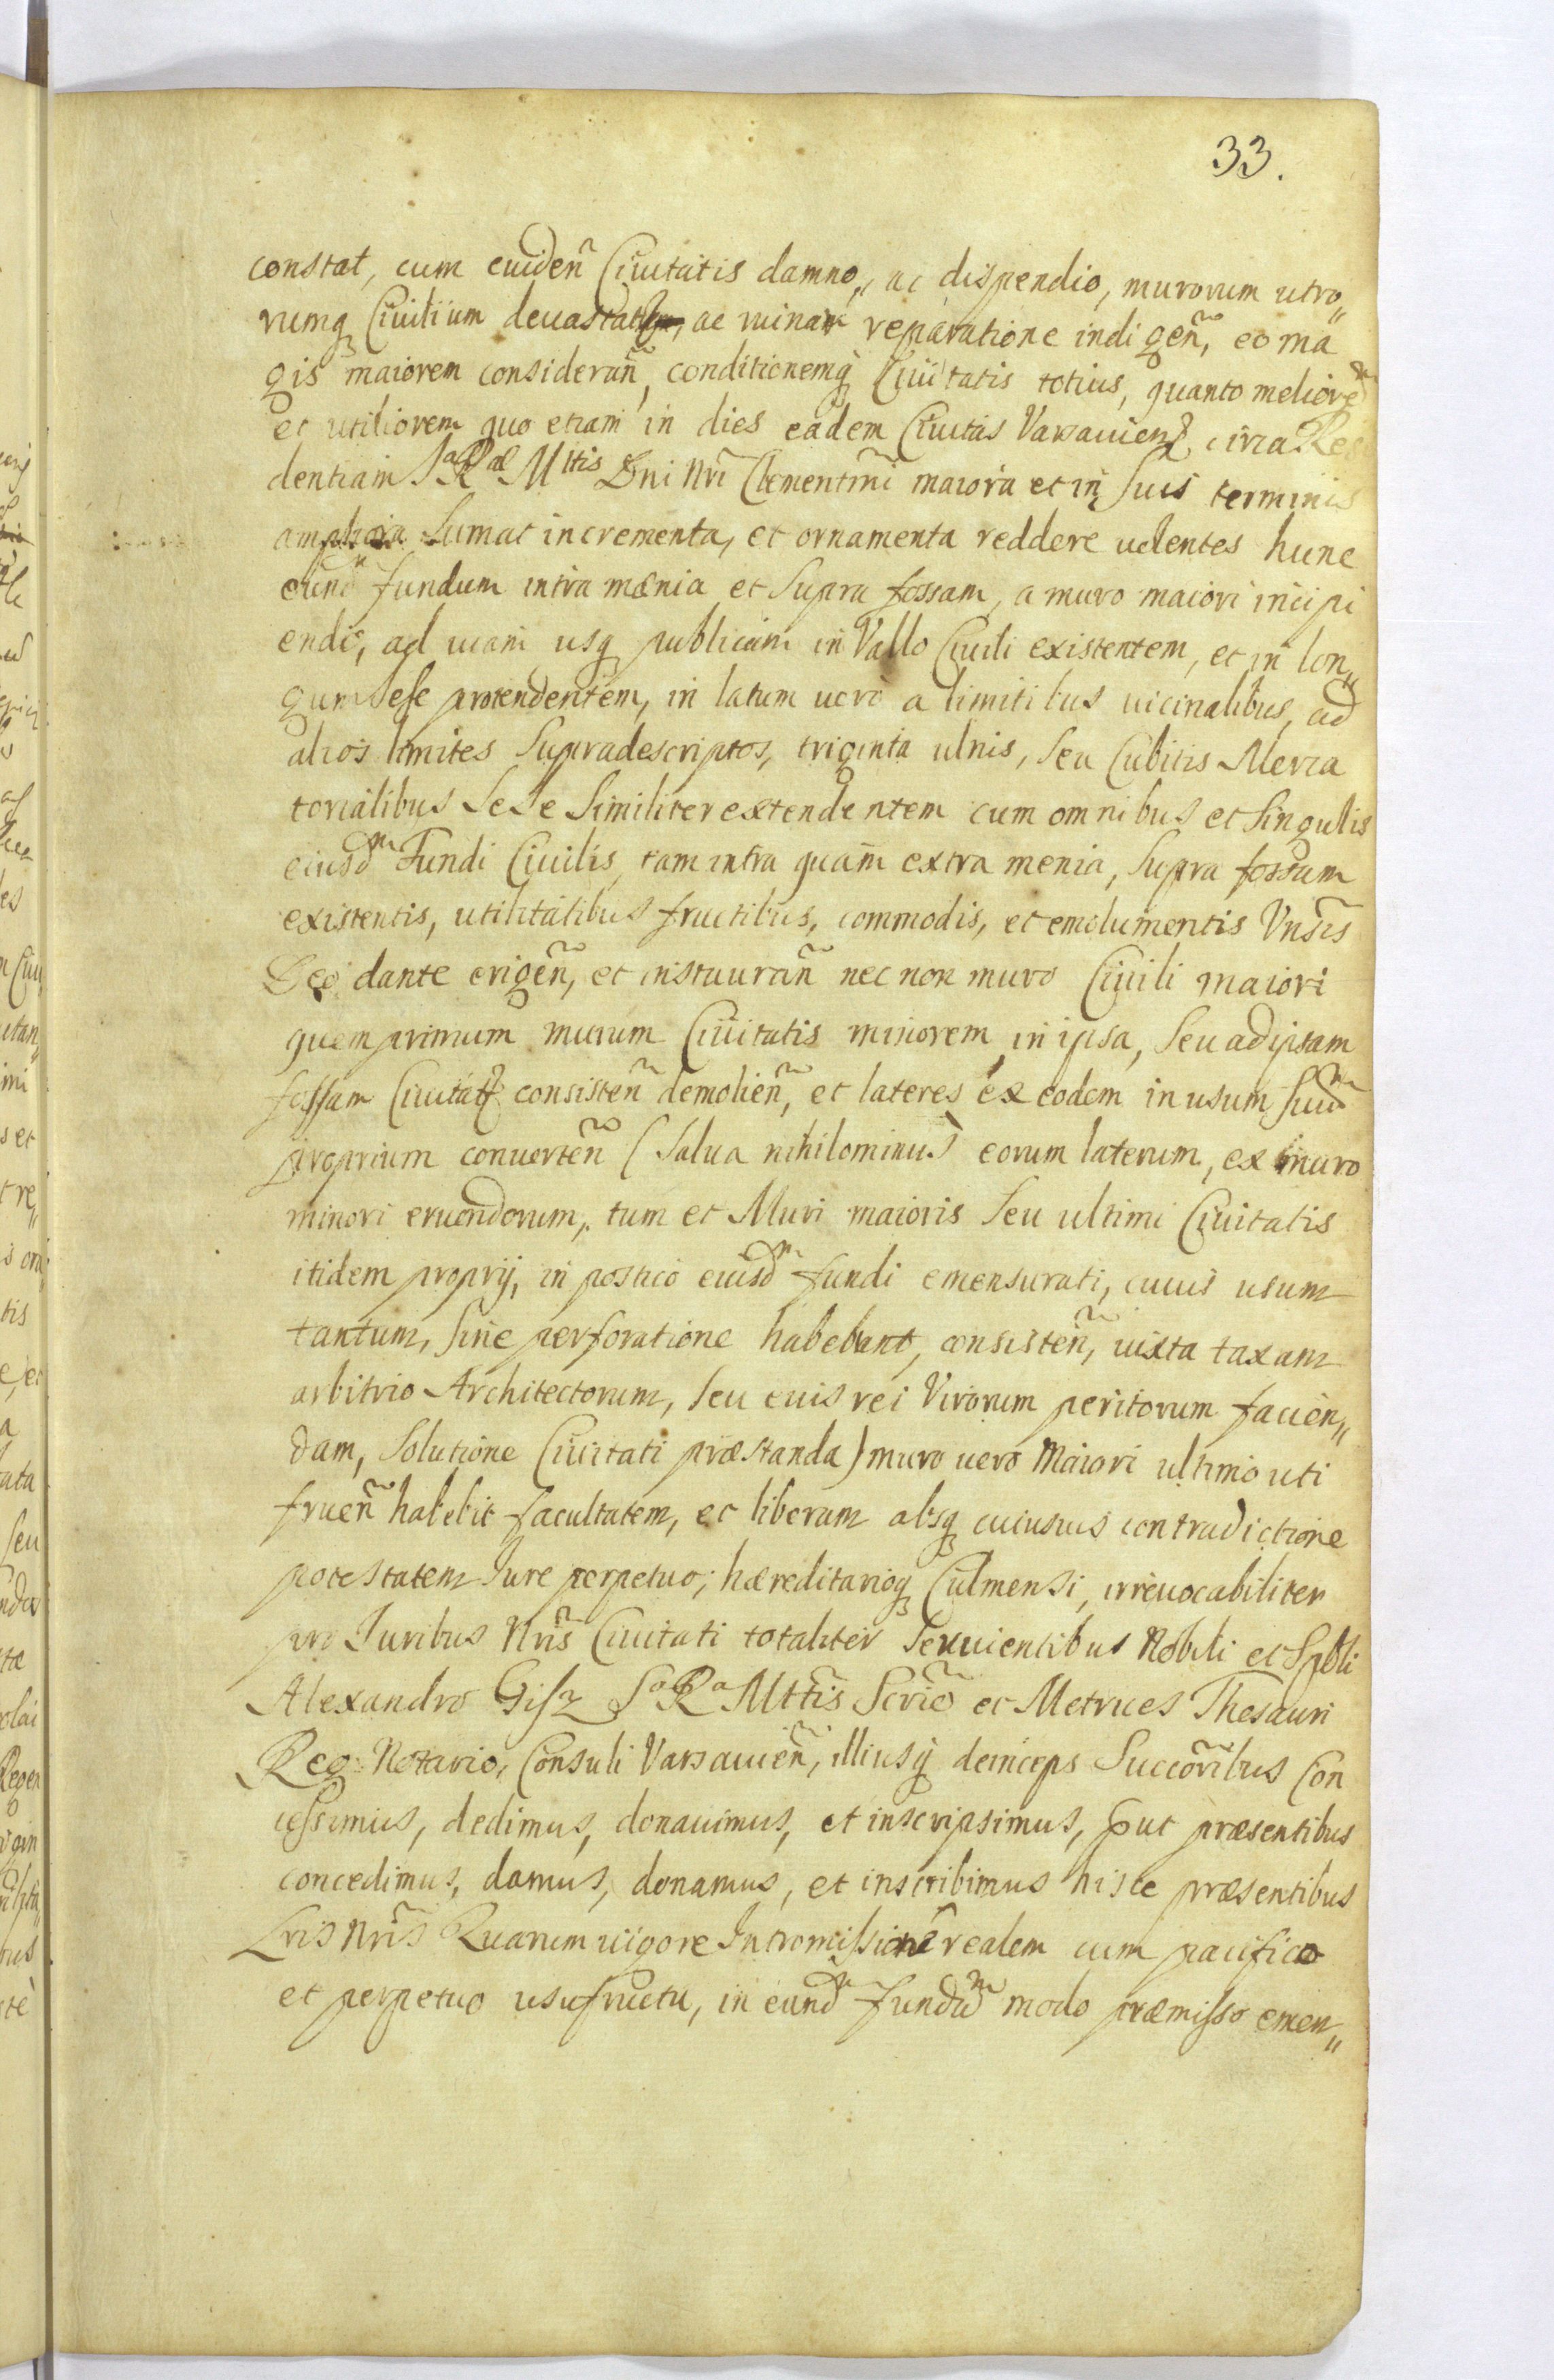 33.
constat, cum euideñ Ciuitatis damno,, ac dispendio, murorum utro„
rumq Ciuilium deuastat, ac ruinam reparatione indigeñ, eo ma
gis maiorem considerañ, conditionemq Ciuitatis totius, quanto meliore
et utiliorem quo etiam in dies eadem Ciuitas Varsauien circa Resi
dentiam SaRæ Mttis Dni Nri Clementmi maiora et in suis terminis
ampliora sumat incrementa, et ornamenta reddere uolentes hunc
eund fundum intra mænia et supra fossam, a muro maiori incipi
endo, ad uiam usq publicam in Vallo Ciuili existentem, et in lon„
gum sese protendentem, in latum uero a limitibus uicinalibus, ad
alios limites supradescriptos, triginta ulnis, seu Cubitis Merca
torialibus sese similiter extendentem cum omnibus et singulis
eiusdm Fundi Ciuilis, tam intra quam extra menia, supra fossam
existentis, utilitatibus fructibus, commodis, et emolumentis Vnsis
Deo dante erigeñ, et instaurañ nec non muro Ciuili maiori
quem primum murum Ciuitatis minorem in ipsa, seu ad ipsam
fossam Ciuitat consisteñ demolieñ, et lateres ex eodem in usum suum
proprium conuerteñ (salua nihilominus eorum laterum, ex muro
minori eruendorum, tum et Muri maioris seu ultimi Ciuitatis
itidem proprij, in postico eiusdm fundi emensurati, cuius usum
tantum, sine perforatione habebant, consisteñ, iuxta taxam
arbitrio Architectorum, seu euis rei Virorum peritorum facien„
dam, solutione Ciuitati præstanda) muro uero Maiori ultimo uti
frueñ habebit facultatem, et liberam absq cuiusuis contradictione
potestatem Iure perpetuo, hæreditarioq Culmensi, irreuocabiliter
pro Iuribus Nris Ciuitati totaliter seruientibus Nobili et Spbli
Alexandro Gisz SaRa Mttis Scrio et Metrices Thesauri
Reg: Notario, Consuli Varsauieñ, illiusq deinceps Succoribus Con
cessimus, dedimus, donauimus, et inscripsimus, put præsentibus
concedimus, damus, donamus, et inscribimus hisce præsentibus
Lris Nris Quarum uigore Intromissionẽ realem cum pacifico
et perpetuo usufructu, in eundm fundum modo præmisso emen„